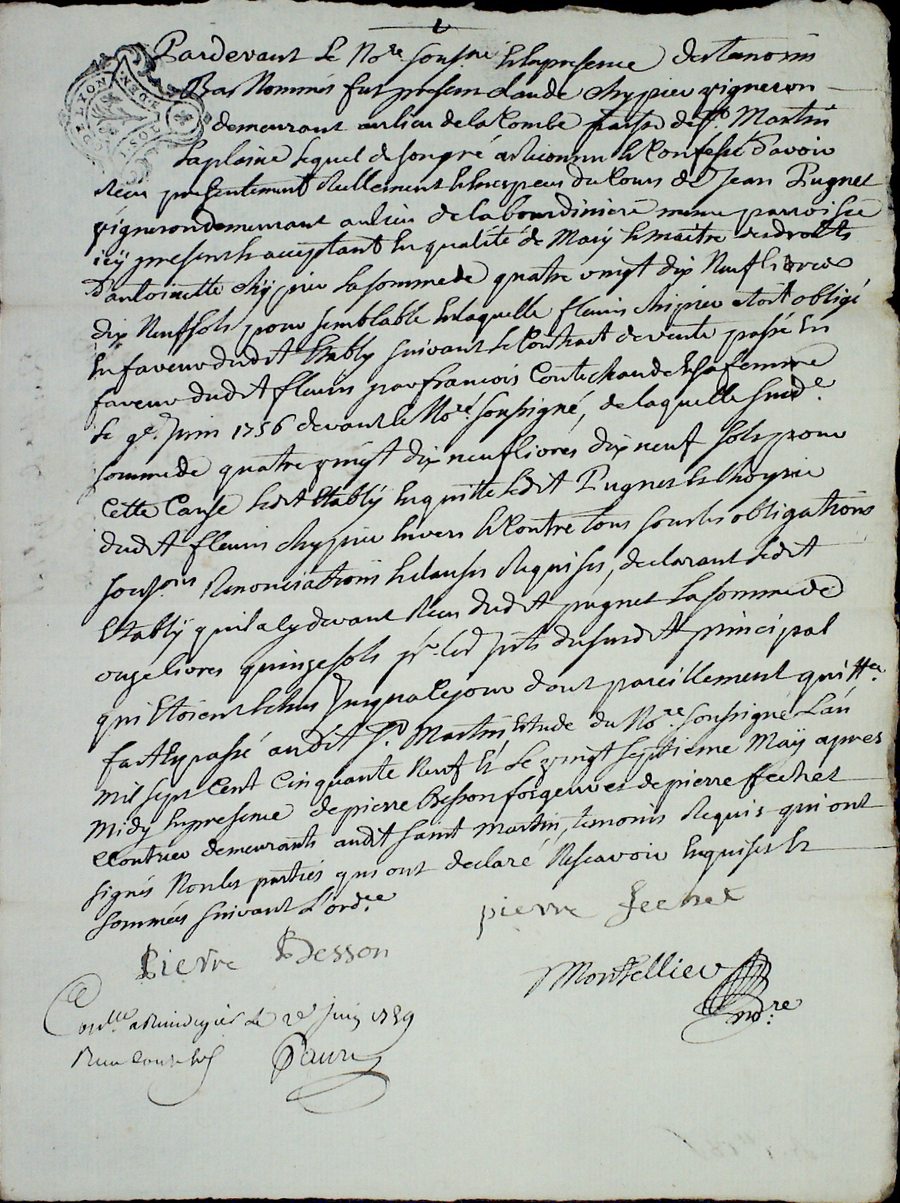 Pardevant le No.re sousné & la presence des temoins
Bas Nommés fut present claude chypier vigneron
demeurant au lieu de la Combe parsse de st Martin
La plaine lequel de son gré a Reconnu & Confessé d'avoir
Receu presentement Reellement & en especes du Cours de sr Jean Pugnet
vigneron demeurant au lieu de la bourdiniere meme parroisse
icÿ present & acceptant En qualité de Marÿ & maitre des droits
D'antoinette chÿpier La somme de quatre vingt dix Neuf livres
dix Neuf sols pour semblable En laquelle fleuri chipier etoit obligé
En faveur dudit Etably suivant le Contract de vente passé En
faveur dudit fleuri par francois Contechaude & sa femme
Le 9e. Juin 1756 devant le No.re soussigné, de laquelle susde.
somme de quatre vingt dix neuf livres dix neuf sols pour
Cette Cause ledit Etablÿ En quitte ledit Pugnet & l'hoyrie
dudit fleuri chypier Envers & Contre tous sous les obligations
soumons Renonciations & clauses Requises, declarant ledit
Etablÿ qu'il a cy devant Receu dudit pugnet La somme de
onze livres quinze sols pr. les jnts du susdit principal
qui Etoient Echus Jusqu'a ce jour dont pareillement quitte.
fait & passé audit st Martin Etude du No.re soussigné L'an
Mil sept Cent Cinquante Neuf & Le vingt septieme Maÿ apres
Midy En presence de pierre Besson forgeur et de pierre fechet
demeurants audit saint Martin, temoins Requis qui ont
signés Non les parties qui ont declaré Ne scavoir Enquises &
sommées suivant L'ordce
pierre fechet
Pierre Besson
Montellier
nore
Conllé a Rivedegier le 2e juin 1759
Receu douze sols
Paure
LYON